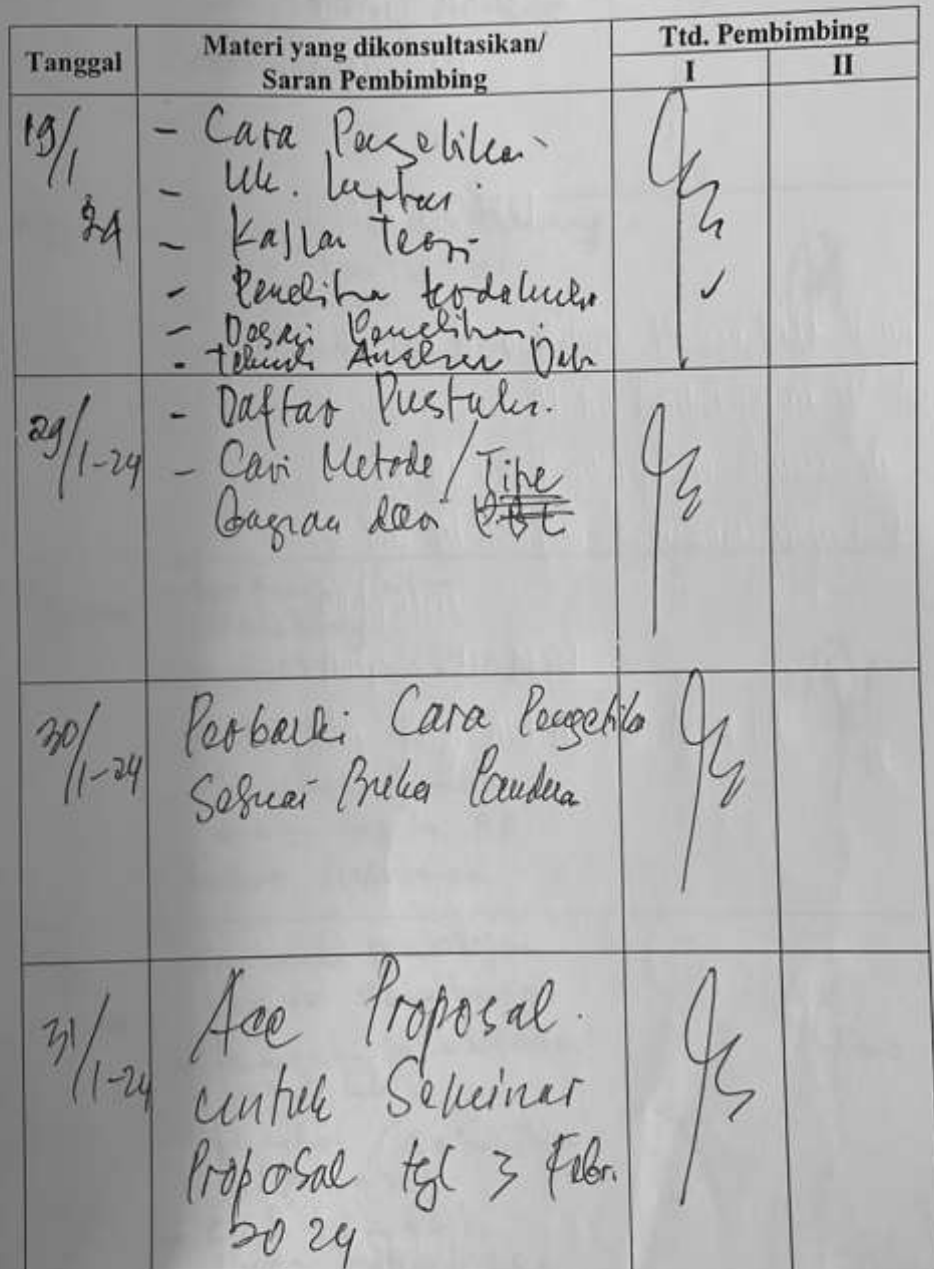 Tanggal
Materi yang dikonsultasikan/
Saran Pembimbing
Ttd. Pembimbing
I
II
19/1
24
- Cara Pengetikan
- Uk. kertas
- Kajian Teori
- Penelitian terdahulu
- Desain Penelitian
- Teknik Analisis Data
29/1-24
- Daftar Pustaka.
- Cari Metode/Tipe
Bagian dari
30/1-24
Perbaiki Cara Pengetika
Sesuai Buku Panduan
31/1-24
Acc Proposal.
untuk Seminar
Proposal tgl 3 Febr.
2024